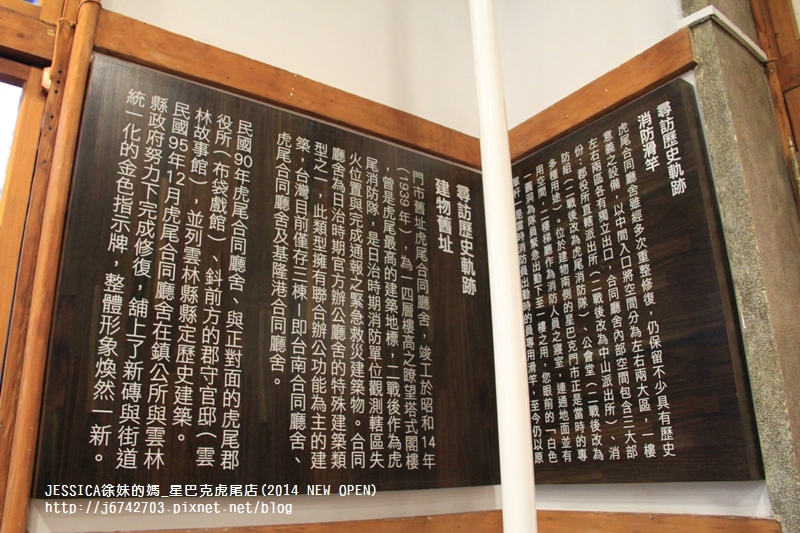 尋訪歷史軌跡
消防滑竿
虎尾合同廳舍雖經多次重整修復，仍保留不少具有歷史
意義之設備，以中間入口將空間分為左右兩大區，一樓
左右兩區各有獨立出口，合同廳舍內部空間包含三大部
份：郡役所直轄派出所（二戰後改為中山派出所）、消
防組（二戰後改為虎尾消防隊）、公會堂（二戰後改為
多種用途）。位於建物南側的星巴克門市正是當時的專
用空間，二樓梯作為消防人員之寢室，連通地面並有
一圓洞為人員緊急出動下至一樓之用，您眼前的「白色
是當時消防員出動時的專用滑竿，至今仍以原
尋訪歷史軌跡
建物舊址
門市舊址虎尾合同廳舍，竣工於昭和14年
（1939年），為一四層樓高之瞭望塔式閣樓
，曾是虎尾最高的建築地標，二戰後作為虎
尾消防隊，是日治時期消防單位觀測轄區失
火位置與完成通報之緊急救災建築物。合同
廳舍為日治時期官方辦公廳舍的特殊建築類
型之一，此類型擁有聯合辦公功能為主的建
築，台灣目前僅存三棟—即台南合同廳舍、
虎尾合同廳舍及基隆港合同廳舍。
民國90年虎尾合同廳舍、與正對面的虎尾郡
役所（布袋戲館）、斜前方的郡守官邸（雲
林故事館），並列雲林縣縣定歷史建築。
民國95年12月虎尾合同廳舍在鎮公所與雲林
縣政府努力下完成修復，舖上了新磚與街道
統一化的金色指示牌，整體形象煥然一新。
JESSICA徐妹的媽_星巴克虎尾店(2014 NEW OPEN)
http://j6742703.pixnet.net/blog